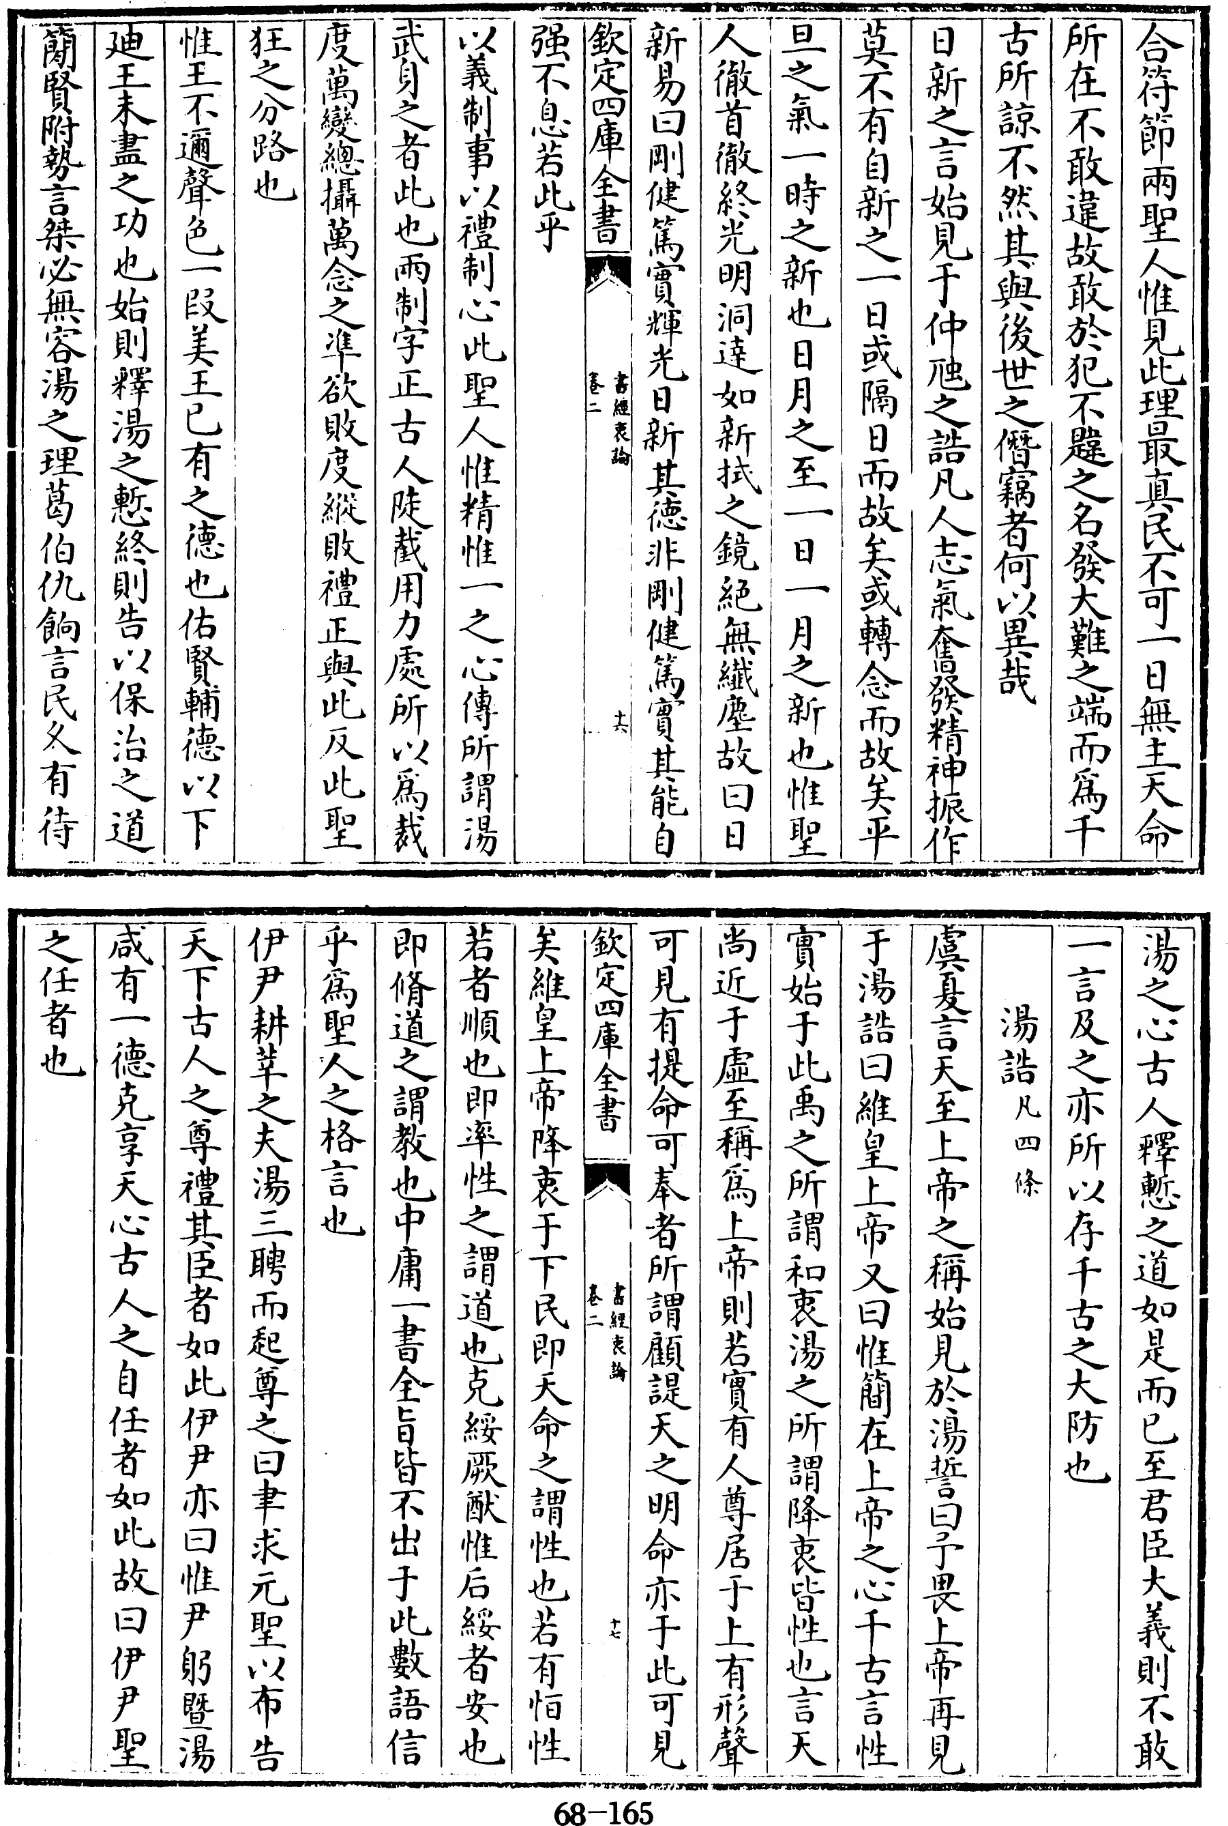 合符節兩聖人惟見此理最真民不可一日無主天命
所在不敢違故敢於犯不韙之名發大難之端而爲千
古所諒不然其與後世之僭竊者何以異哉
日新之言始見于仲虺之誥凡人志氣奮發精神振作
莫不有自新之一日或隔日而故矣或轉念而故矣平
旦之氣一時之新也日月之至一日一月之新也惟聖
人徹首徹終光明洞達如新拭之鏡絕無纖塵故曰日
新易曰剛健篤實輝光日新其德非剛健篤實其能自
欽定四庫全書
書經衷論
卷二
十六
强不息若此乎
以義制事以禮制心此聖人惟精惟一之心傳所謂湯
武身之者此也兩制字正古人陡截用力處所以爲裁
度萬變總攝萬念之準欲敗度縱敗禮正與此反此聖
狂之分路也
惟王不邇聲色一段美王已有之德也佑賢輔德以下
廸王未盡之功也始則釋湯之慙終則告以保治之道
簡賢附勢言桀必無容湯之理葛伯仇餉言民久有待
湯之心古人釋慙之道如是而已至君臣大義則不敢
一言及之亦所以存千古之大防也
湯誥凡四條
虞夏言天至上帝之稱始見於湯誓曰予畏上帝再見
于湯誥曰維皇上帝又曰惟簡在上帝之心千古言性
實始于此禹之所謂和衷湯之所謂降衷皆性也言天
尚近于虛至稱爲上帝則若實有人尊居于上有形聲
可見有提命可奉者所謂顧諟天之明命亦于此可見
欽定四庫全書
書經衷論
卷二
十七
矣維皇上帝降衷于下民即天命之謂性也若有恒性
若者順也即率性之謂道也克綏厥猷惟后綏者安也
即脩道之謂教也中庸一書全旨皆不出于此數語信
乎爲聖人之格言也
伊尹耕莘之夫湯三聘而起尊之曰聿求元聖以布告
天下古人之尊禮其臣者如此伊尹亦曰惟尹躬暨湯
咸有一德克享天心古人之自任者如此故曰伊尹聖
之任者也
68-165